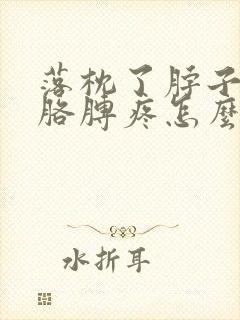 落枕了脖子
胳膊疼怎麼
水折耳